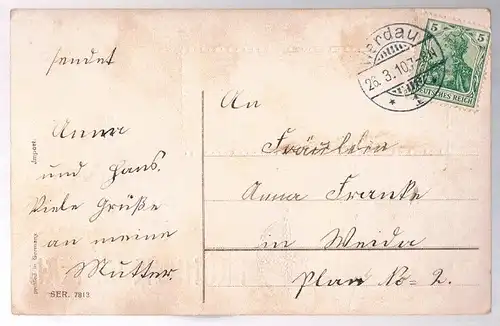 sendet
Anna
und Hans.
Viele Grüße
an meine
Mutter.
An
Fräulein
Anna Franke
in Weida
Plan No = 2.
Werdau
26.3.10.7-8V
5 5
DEUTSCHES REICH
Import.
printed in Germany.
SER. 7813